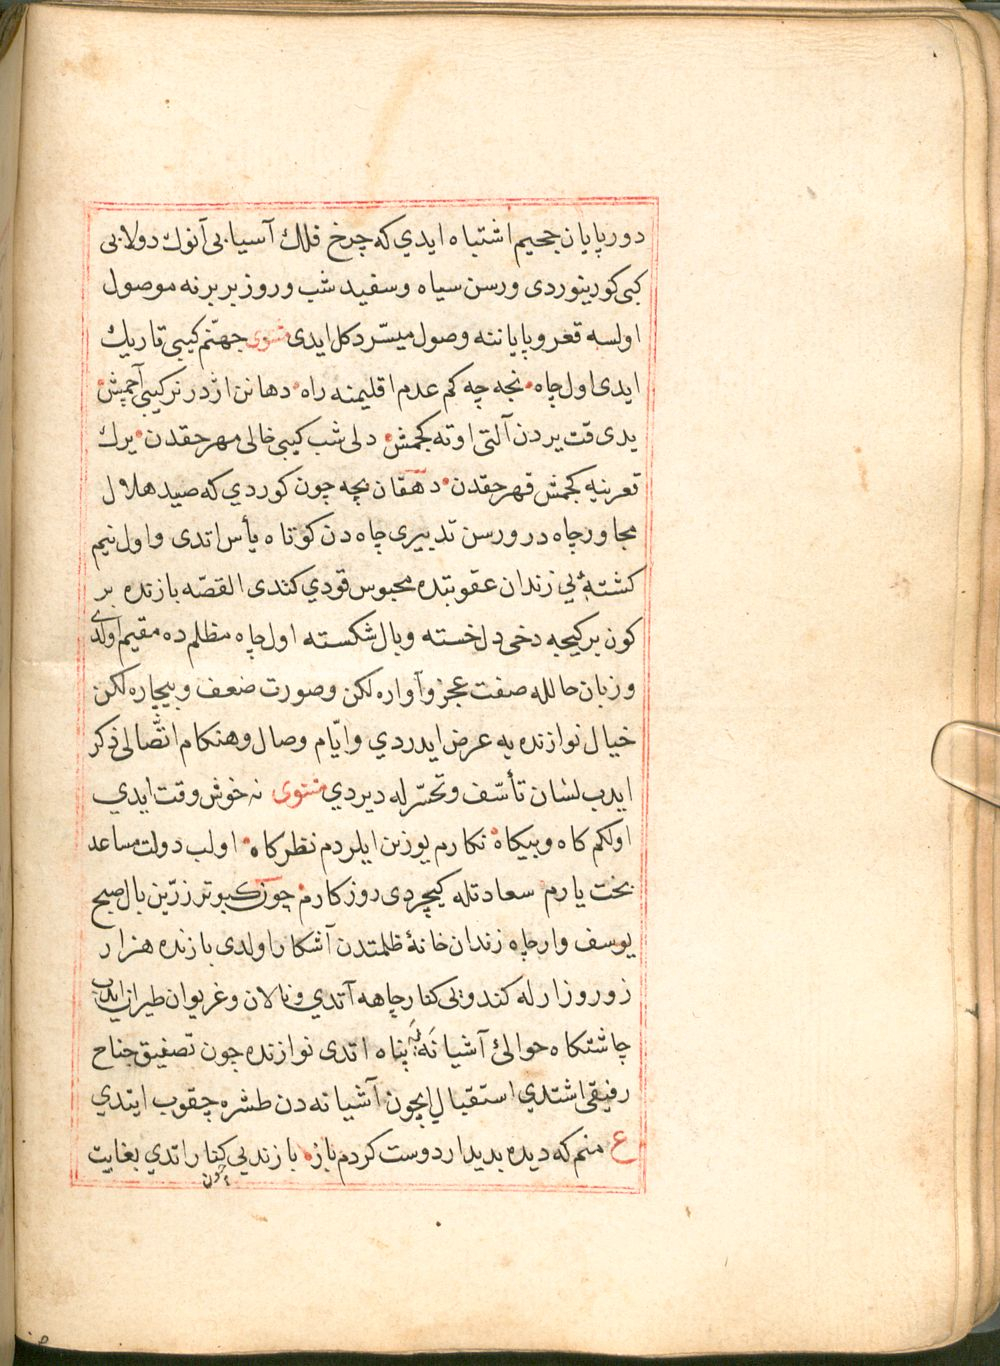 دور پايان جحيم اشتباه ايدي كه چرخ فلك آسيابی آنوك دولابی
كبی كورينوردی ورسن سياه وسفيد شب وروز بربرنه موصول
اولسه قعر وپاياننه وصول ميسّر دكل ايدی مثنوی جهنّم كيبی تاريك
ايدی اول چاه نجه چه كم عدم اقليمنه راه دهانن اژدر نر كيبی آچمش
يدی قت يردن آلتی اوته كچمش دلی شب كيبی خالی مهر حقدن يرك
قعرينه كچمش قهر حقدن دهقان بچه چون كوردي كه صيد هلال
مجاور چاه در ورسن تدبيری چاه دن كوتاه يأس اتدی واول نيم
كشته‌ٔ يي زندان عقوبتده محبوس قودي كندی القصّه بازنده بر
كون بر كيجه دخی دلخسته وبال شكسته اول چاه مظلم ده مقيم اولدی
وزبان حالله صفت عجز وآواره لكن وصورت ضعف وبيچاره لكن
خيال نوازنده يه عرض ايدردي وايّام وصال وهنكام اتّصالی ذكر
ايدب لسان تأسّف وتحسّرله ديردي مثنوی نه خوش وقت ايدي
اولكم كاه وبيكاه نكارم يوزنن ايلردم نظركاه اولب دولت مساعد
بخت يارم سعادتله كيچردی روزكارم چون كبوتر زرّين بال صبح
يوسف وار چاه زندان خانۀ ظلمتدن آشكار اولدی بازنده هزار
زور وزارله كندويی كنار چاهه آتدي ونالان وغريوان طيران ايدب
چاشتكاه حوالئ آشيانه‌يه پناه اتدی نوازنده چون تصفيق جناح
رفيقی اشتدي استقبال ايچون آشيانه دن طشره چقوب ايتدي
ع منم كه ديده بديدار دوست كردم باز بازنديی كنار اتدي بغايت
چون